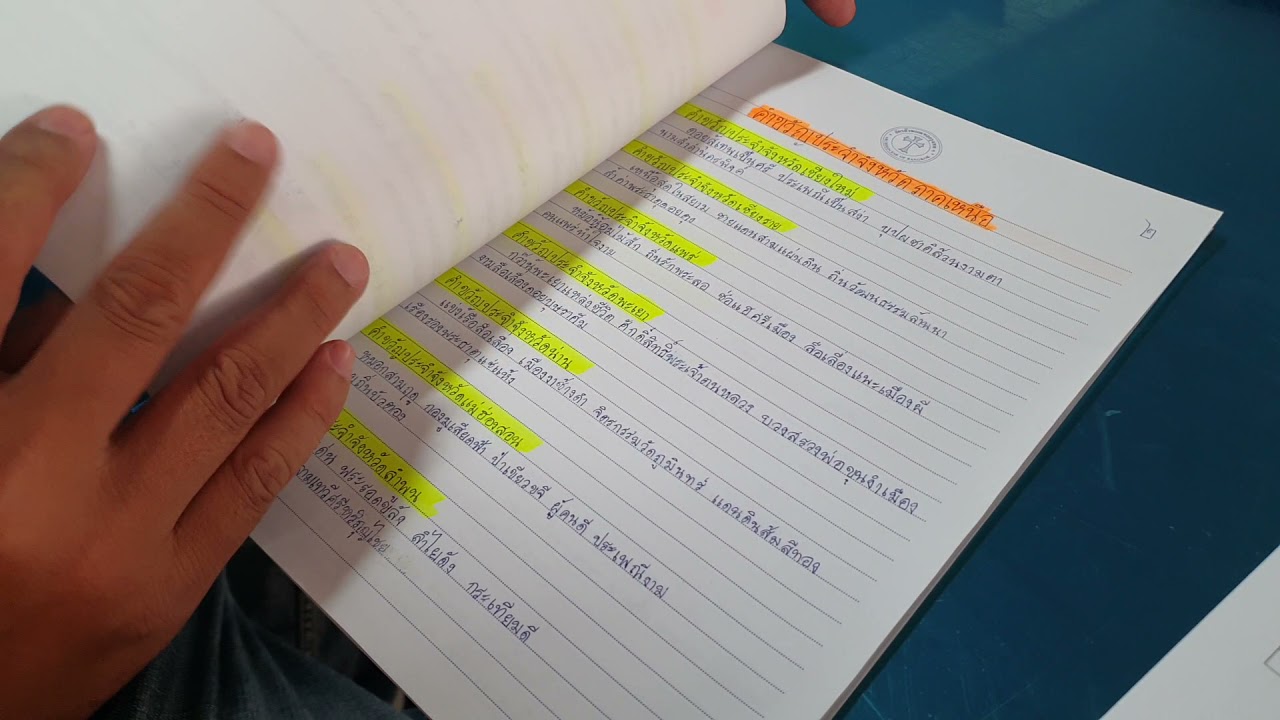 ๒
คำขวัญประจำจังหวัด ภาคเหนือ
คำขวัญประจำจังหวัดเชียงใหม่
ดอยสุเทพเป็นศรี ประเพณีเป็นสง่า บุปผชาติล้วนงามตา
นามล้ำค่านครพิงค์
คำขวัญประจำจังหวัดเชียงราย
เหนือสุดในสยาม ชายแดนสามแผ่นดิน ถิ่นวัฒนธรรมล้านนา
ล้ำค่าพระธาตุดอยตุง
คำขวัญประจำจังหวัดแพร่
หม้อห้อมไม้สัก ถิ่นรักพระลอ ช่อแฮศรีเมือง ลือเลื่องแพะเมืองผี
คนแพร่นี้ใจงาม
คำขวัญประจำจังหวัดพะเยา
กว๊านพะเยาแหล่งชีวิต ศักดิ์สิทธิ์พระเจ้าตนหลวง บวงสรวงพ่อขุนงำเมือง
งามลือเลื่องดอยบุษราคัม
คำขวัญประจำจังหวัดน่าน
แข่งเรือลือเลื่อง เมืองงาช้างดำ จิตรกรรมวัดภูมินทร์ แดนดินส้มสีทอง
เรืองรองพระธาตุแช่แห้ง
คำขวัญประจำจังหวัดแม่ฮ่องสอน
หมอกสามฤดู กองมูเสียดฟ้า ป่าเขียวขจี ผู้คนดี ประเพณีงาม
ถิ่นบัวตอง
ประจำจังหวัดลำพูน
เด่น พระรอดขลัง ลำไยดัง กระเทียมดี
จามเทวีศรีหริภุญไชย